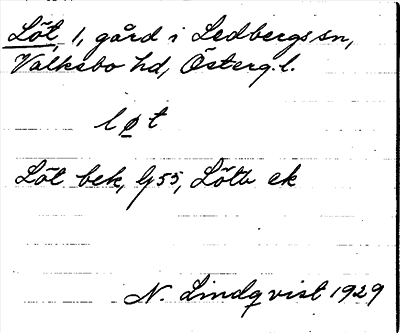 Löt, 1, gård i Ledbergs sn,
Valkebo hd, Österg.l.
løt
Löt bek, G 55, Lötb ek
N. Lindqvist 1929